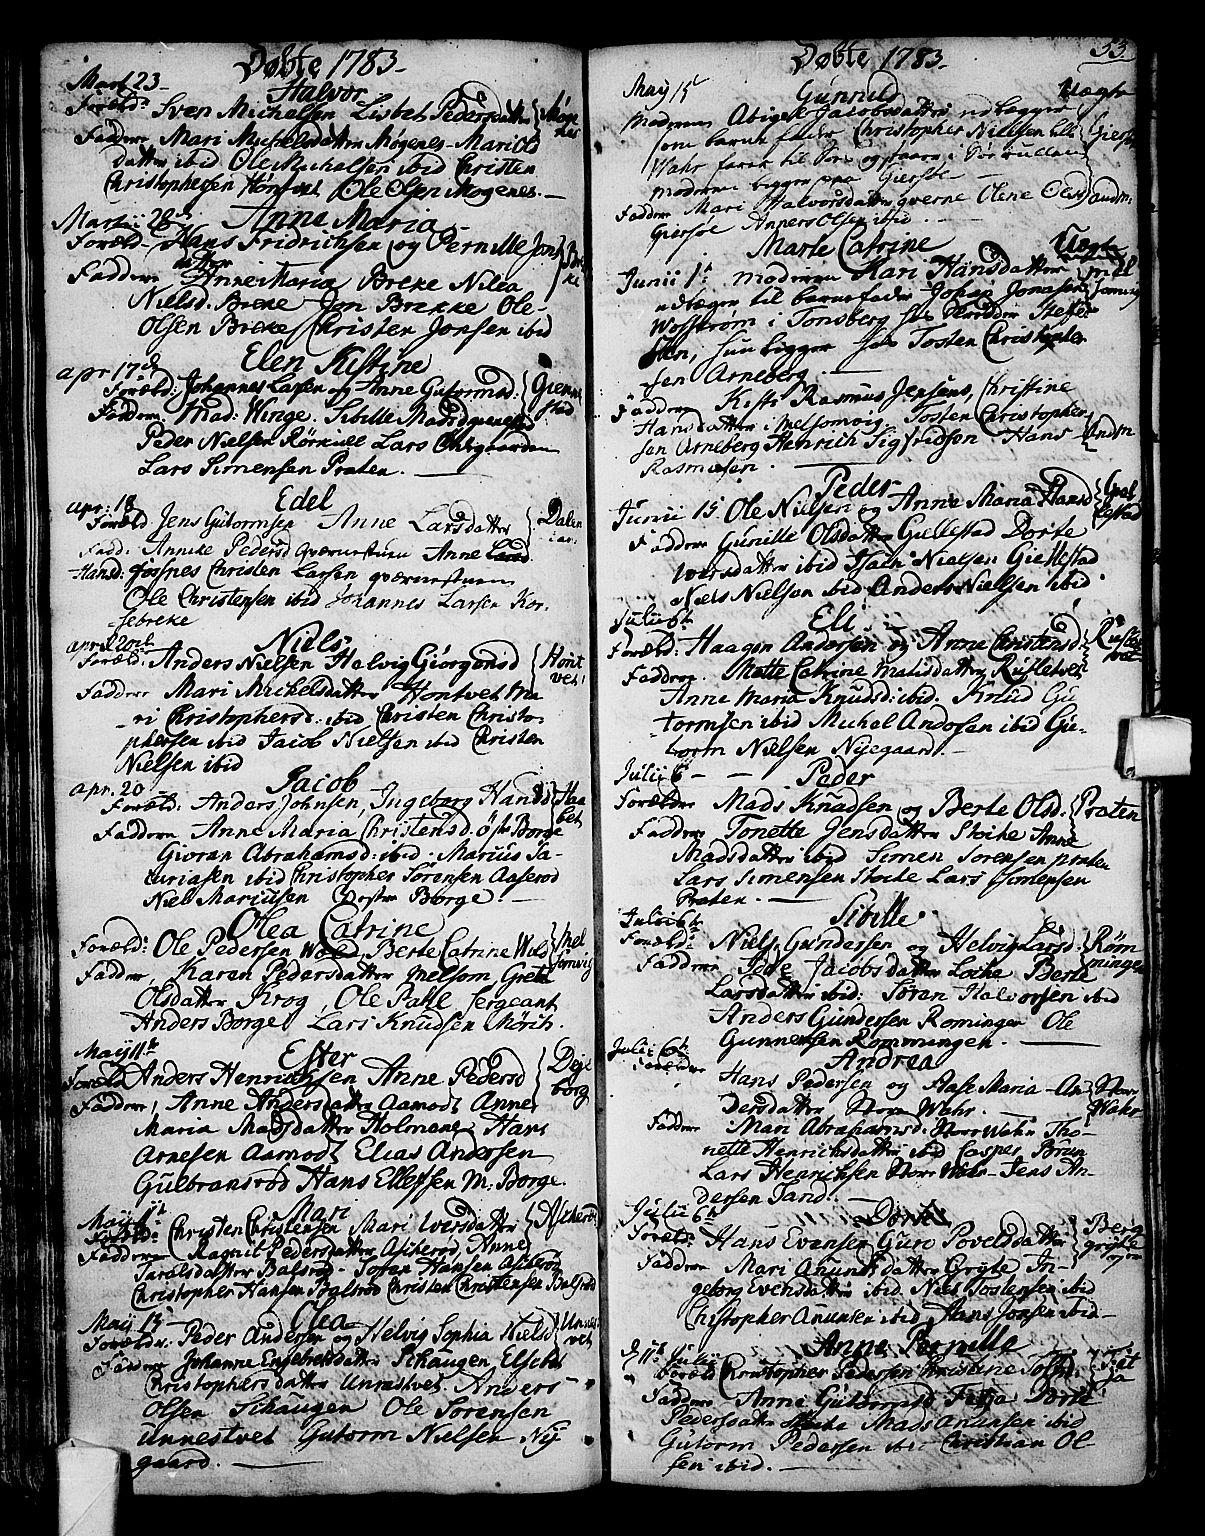 Døbte 1783.
Mart 23
Halvor
Foræld: Sven Michelsen Lisbet Pedersdatter
Møge
nes
Faddere Mari Michelsdatter Møgenes - Mari Ols
datter ibid Ole Michelsen ibid Christen
Christophersen Høntvet Ole Olsen Mogenes.
Martii 28
Anne Maria
Foræld- Hans Fridrichsen og Pernille Jons
datter
Bre
ke
Faddere Anne Maria Breke
Nielsd. Breke Jon Brekke Ole
Olsen Breke Christen Jonsen ibid
apr 17
Elen Kistine
Foræld: Johannes Larsen og Anne Gutormsd.
stad
Faddere Mad: Winge. Sibille Madsd
Peder Nielsen Rørkull Lars
Lars Simensen Praten.
apr: 18
Edel
Foræld. Jens Gutormsen Anne Larsdatter
Dalen
Fadd: Annike Pedersd qværnestuen Anne
Hansd: Christen Larsen qværnestuen
Ole Christensen ibid Johannes Larsen Kor-
sebreke
april 20
Niels
Foræld: Anders Nielsen Helvig Giorgensd
Hønt
vet
Faddere Mari Michelsdatter Hontvet Ma-
ri Christophersd: ibid Christen Christo-
phersen ibid Jacob Nielsen ibid Christen
Nielsen ibid
apr. 20
Jacob
Foræld: Anders Johnsen, Ingeborg Hansd
Haa
bet
Faddere Anne Maria Christensd. Østre Borge
Gioran Abrahamsd: ibid. Marius Sa-
cariasen ibid Christopher Sørensen Aaserod
Niel Mariusen Borge.
Olea Catrine
Foræld: Ole Pedersen Wold, Berte Catrine
Mel
somvig
Faddere Karen Pedersdatter Melsom Grete
Olsdatter Krog, Ole Palle sergeant
Anders Borge Lars Knudsen Mørch.
Maÿ 11
Ester
Foræld Anders Henrichsen Anne Pedersd
borg
Faddere, Anne Andersdatter Aamodt Anne
Maria Madsdatter Holmene, Hans
Arnesen Aamodt Elias Andersen
Gulbransrød Hans Ellefsen M: Borge.
Maÿ 11
Mari
Foræld: Christen Christensen Mari Iversdatter
Askerød
Faddere Ragnil Pedersdatter Askerod, Anne
Taralsdatter Balsrod - Johan Hansen Askerod
Christopher Hansen Balsrod Christen Christensen Balsrod
Maÿ 15
Olea
Foræld. Peder Andersen og Helvig Sophia Nielsd
Unnes
vet
Faddere Johanne Engebretsdatter Schaugen Elsebet
Christophersdatter Unnestvet Anders
Olsen Schaugen Ole Sørensen
Unnestvet Gutorm Nielsen Ny
gaard.
Døbte 1783.
53
Maÿ 15
Gunnild
Uægte
Moderen Abigel Jacobsdatter udlegger
som barne fader Christopher Nielsen lille
Wahr farer til Søes og staaer i Søe rullen
moderen ligger paa Giersøe
Giersøe
Faddere Mari Halvorsdatter Olene Olsd
Giersøe Anders Olsen ibid.
Marte Catrine
Uægte
Junii 1
moderen Kari Hansdatter
somvig
udlægger til barnefader Johan Jonasen
Wosstrøm i Tonsberg
hun ligger hos Tosten Christopher
sen Arneberg.
Faddere Kisti Rasmus Jensens, Christine
Hansdatter i Melsomvig Tosten Christopher
sen Arneberg Henrich Sigfridson Hans
Rasmusen.
Peder
Junii 15 Ole Nielsen og Anne Maria Hansd
Faddere Gunille Olsdatter Gullestad Dorte
Iversdatter ibid Nielsen Giellestad
Niels Nielson ibid Anders Nielsen ibid.
Julii 6
Eli.
Foræld: Haagen Andersen og Anne Christensd.
Faddere. Mette Catrine Matisdatter
Anne Maria Knudsd: ibid. Knud Gu-
tormsen ibid Michal Andersen ibid Gu-
torm Nielsen Nyegaard.
Julii 6
Peder
Foræld Mads Knudsen og Berte Olsd.
Praten
Faddere Tonette Jensdatter Skoike Anne
Madsdatter ibid Simen Sorensen praten
Lars Simensen Skoike Lars Simensen
Praten.
Julii 6
Sibille
Foræld: Niels Gundersen og Helvig Larsd.
Røm
mingen
Faddere Jacobsdatter Loike Berte
Larsdatter ibid: Søren Halvorsen ibid
Anders Gundersen Rominger Ole
Gunnersen Rommingen.
Julii 6
Andrea
Foreldre Hans Pedersen og Aase Maria An
dersdatter Store Wahr.
Store
Wahr
Faddere Mari Abrahamsd: Store Wahr Tho-
nette Henrichsdatter ibid Casper Brun
Lars Henrichsen Store Wahr Jens An-
dersen Sand.
Julii 6
Dorte
Foræld: Hans Evensen Guro Povelsdatter
Berg
Faddere Mari Anundsdatter Gryte In-
geborg Evensdatter ibid Niels Tostensen ibid
Christopher Anunsen ibid Hans Joasen ibid-
D. 11 Julii
Anne Pernille
Foræld Christopher Pedersen Christine
Faddere Anne Gutormsd Dorte
Pedersdatter Skoike Mads Anunsen ibid
Gutorm Pedersen ibid Christian Ol-
sen ibid.